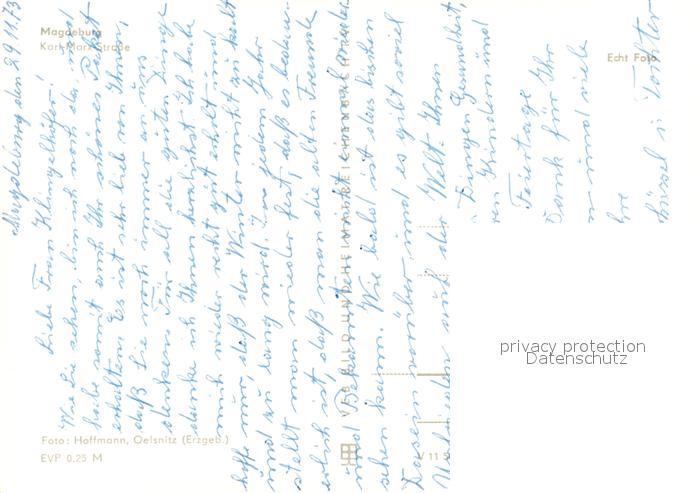 Magdeburg
Karl-Marx-Straße
Echt Foto
Magdeburg den 29.11.73
Liebe Frau Klingelhöfer!
Wie Sie sehen, bin ich noch da, und
habe somit auch Ihr schönes Paket
erhalten. Es ist sehr lieb von Ihnen,
daß Sie noch immer an uns
denken. Für all die guten Dinge
danke ich Ihnen herzlichst. Ich habe
mich wieder recht gut erholt und
hoffe nur, daß der Winter nicht zu kalt
und zu lang wird. In jedem Jahr
stellt man wieder fest, daß es bedau-
erlich ist, daß man die alten Freunde
und Bekannten nicht mehr
sehen kann. Wie bald ist das kurze
Dasein vorüber und es gibt soviel
auf der Welt. Ihnen
Gesundheit,
ren Kindern und
Feiertage
Dank für Ihr
und viele
Ihre
u. Tochter
VEB BILD UND HEIMAT REICHENBACH
Foto: Hoffmann, Oelsnitz (Erzgeb.)
EVP 0,25 M
V 11 5
privacy protection
Datenschutz